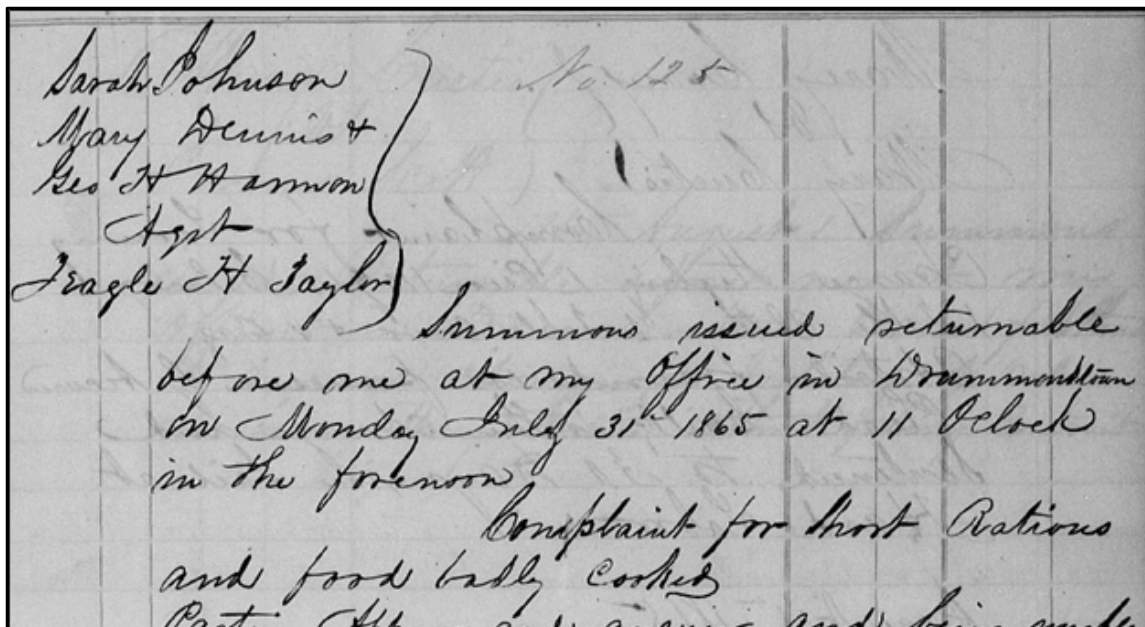 Sarah Johnson
No. 125
Mary Dennis &
Geo H Harmon
Agst
Teagle H Taylor
Summons issued returnable
before me at my Office in Drummondtown
on Monday July 31st 1865 at 11 Oclock
in the forenoon
Complaint for Short Rations
and food badly Cooked
and and being